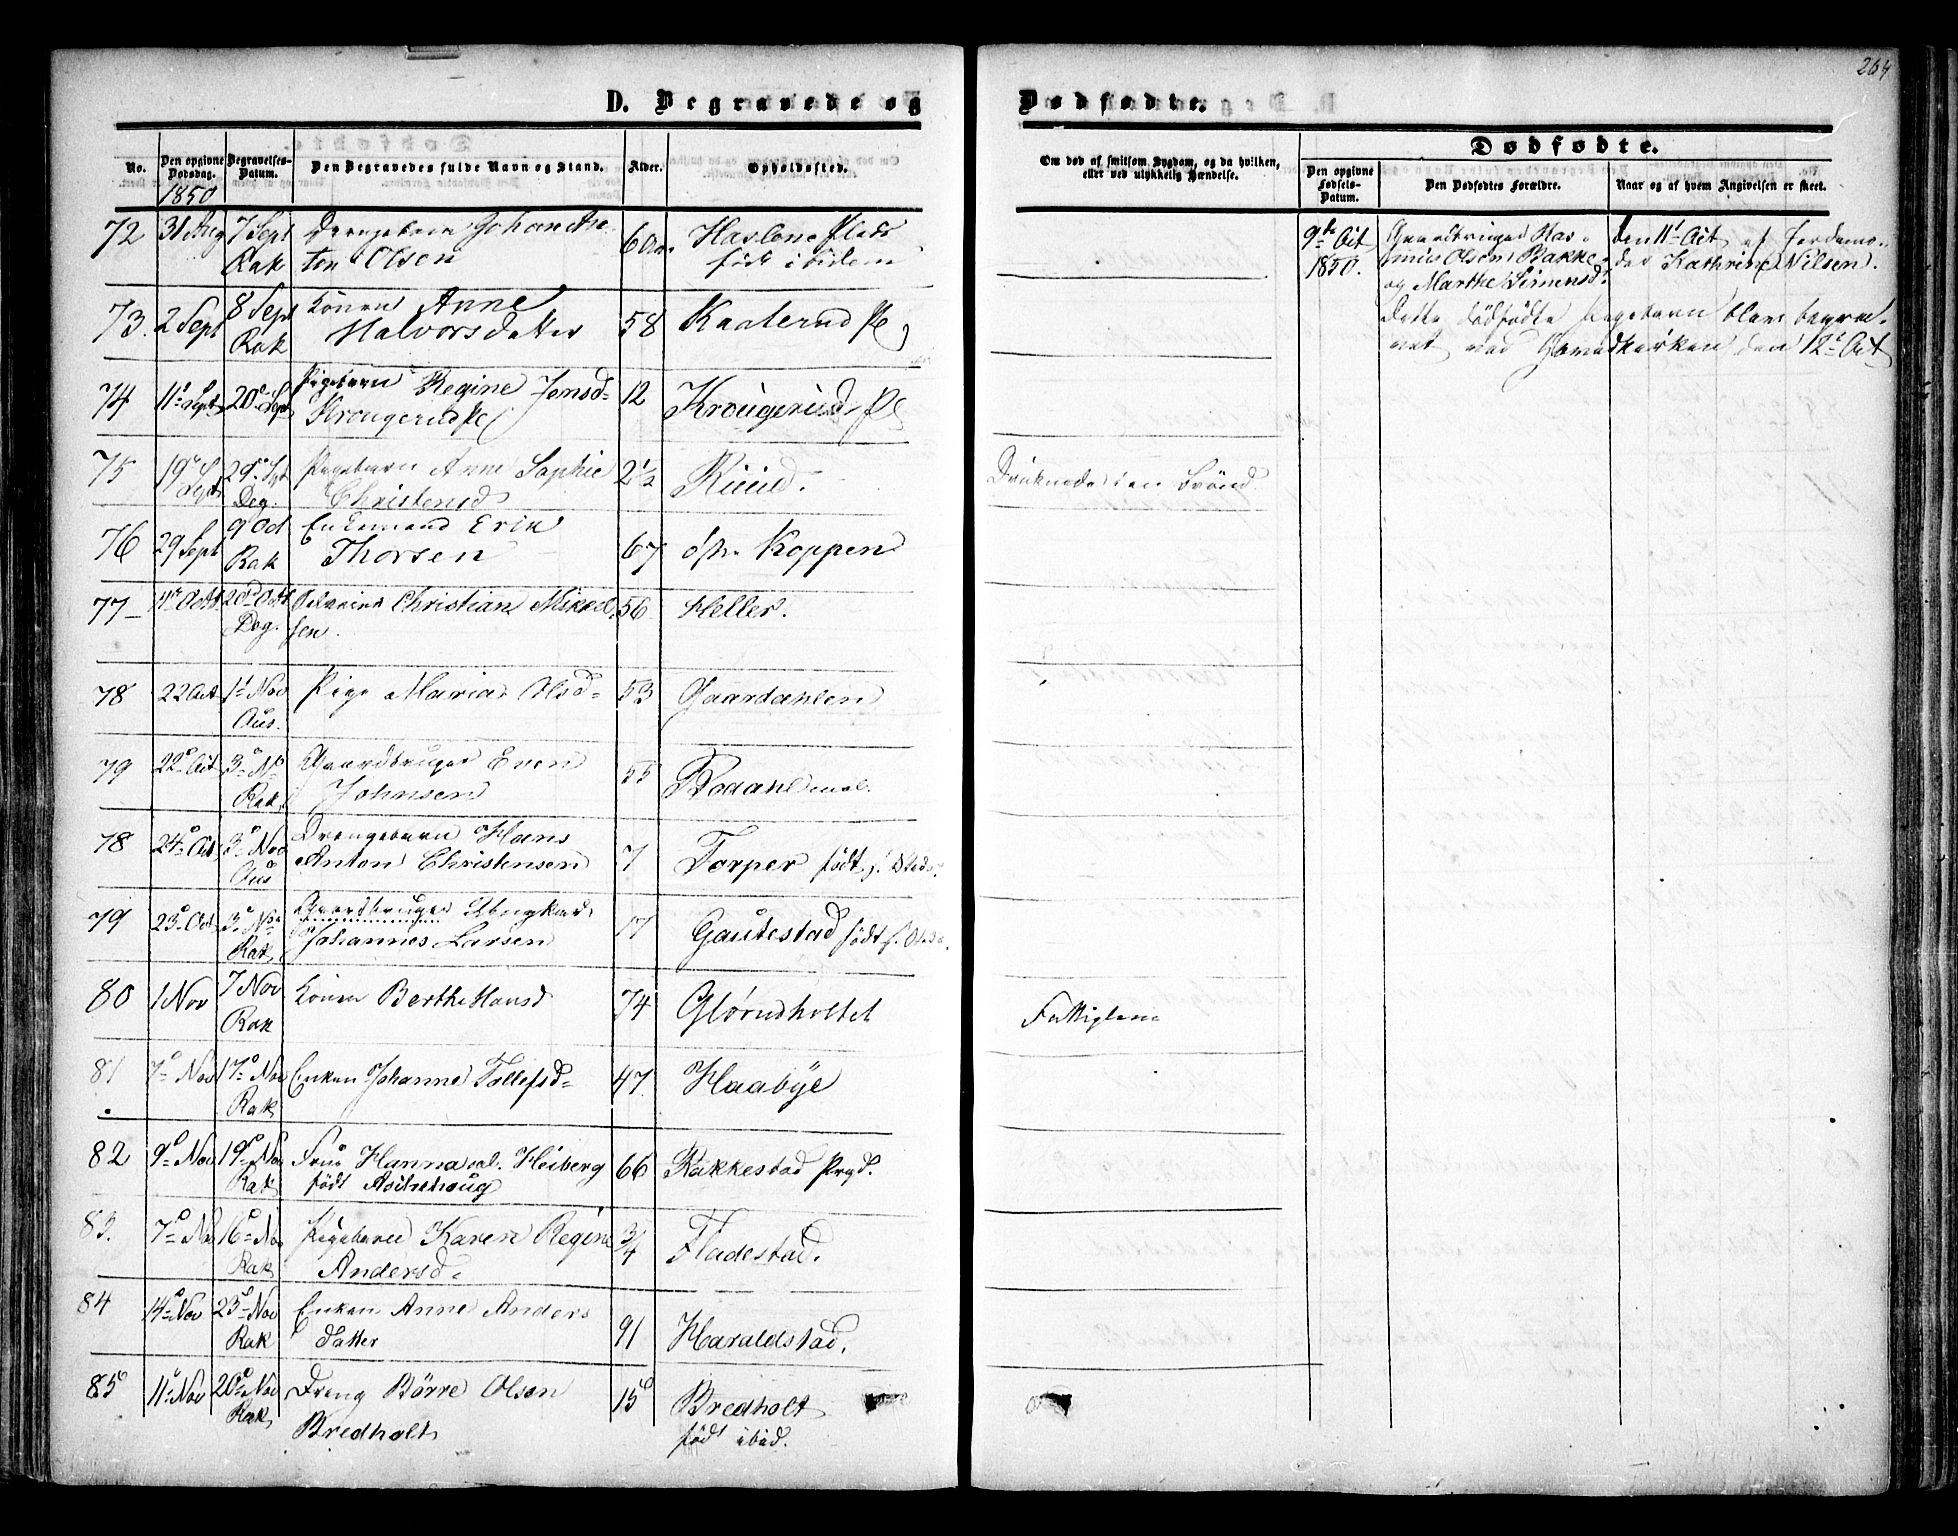 264
D. Begravede og Dødfødte.
No.
Den opgivne Dødsdag.
Begravelses-Datum.
Den Begravedes fulde Navn og Stand.
Alder.
Opholdssted.
Om død af smitsom Sygdom, og da hvilken, eller ved ulykkelig Hændelse.
Dødfødte.
Den opgivne Fødsels-Datum.
Den Dødfødtes Forældre.
Naar og af hvem Angivelsen er skeet.
1850
72 31 Aug 7 Sept Drengebarn Johan An-
Rak ton Olsen
født ibidem
9de Oct Gaardbruger Ras- den 11te Oct af Jordemo-
1850. mus Olsen Bakke der Kathrine Nilsen.
og Marthe Simensd.
Dette dødfødte Pigebarn blev begra-
vet ved Hovedkirken den 12te Oct
73. 2 Sept 8 Sept Konen Anne 58
Rak Halvorsdatter
74 11te Sept 20de Sept Pigebarn Regine Jensd- 12 Krougerud Pl
Krougerud Pl
75 19de Sept 29de Spt Pigebarn Anne Sophie 2 1/2 Ruud. Druknede i en Brønd
Deg. Christensd
76 29 Sept 9 Oct Enkemand Erik 67 Koppen
Rak Thorsen
77 Octb 20de Octb Christian Mikael 56 Heller.
Deg. sen.
78 22 Oct 1te Nov Pige Maria Olsd- 53 Gaardahlen
Aus.
79 22de Oct 3de N Gaardbruger Even 55 Bodahl
Rak Johnsen
78 24de Oct 3de Nov Drengebarn Hans 7 Torper født
Aus Anton Christensen
79 23de Oct 3de Nov Gaardbruger Ungkarl 77 Gautestad født
Rak Johannes Larsen
80 1 Nov 7 Nov Konen Berthe Hansd 74 Glørudholtet Fattiglem
Rak
81 7de Nov 17de Nov Enken Johanne Tollefsd- 47 Haabye
Rak
82 9de Nov 19de Nov Frue Hanna Heiberg 66 Rakkestad Prgd.
Rak født Aschehoug
83. 7de No 16de Nov Pigebarn Karen Regine 3/4 Fladestad.
Rak Andersd-
84 14de Nov 23de Nov Enken Anne Anders 91 Haraldstad.
Rak datter
85 11te Nov 20de Nov Dreng Børre Olsen 15 Bredholt
Rak Bredholt født ibid.